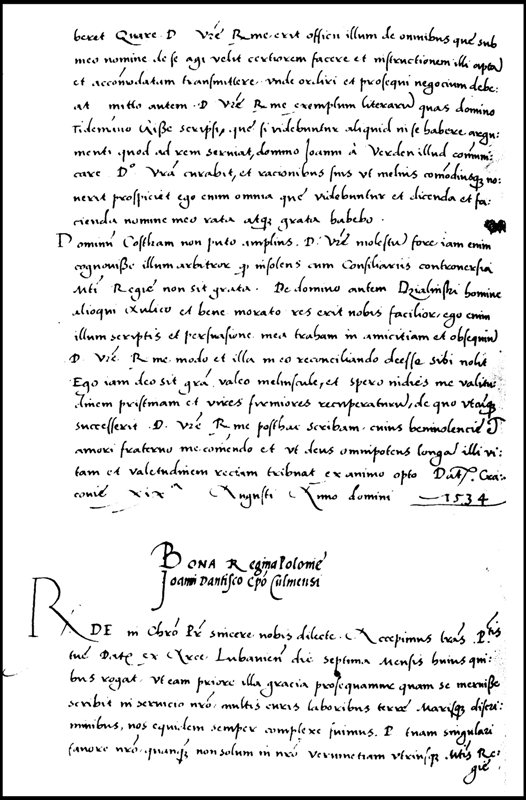 beret Quare D Vrē Rme erit officii illum de omnibus quę sub
meo nomine de se agi velit certiorem facere et instructionem illi aptā
et accōmodatam transmittere vnde ordiri et prosequi negocium debe:
at mitto autem D Vrē Rme exemplum literarū quas domino
Tidemāno Gise scripsi, quę si videbuntur aliquid in se habere argu:
menti quod ad rem serviat, domino Joanni à Verden illud cōmuni:
care Do Vrā curabit, et racionibus suis vt melius cōmodiusq; no:
uerit prospiciet ego enim omnia quę videbuntur et dicenda et fa:
cienda nomine meo rata atq; grata habebo.
Dominū Costkam non puto amplius D. Vrē molestū fore, iam enim
cognouisse illum arbitror q insolens cum Consiliariis controuersia
Mti Regie non sit grata. De domino autem Dzialinski homine
alioqui Aulico et bene morato res erit nobis facilior, ego enim
illum scriptis et persuasione mea traham in amicitiam et obsequiū
D Vrē Rme modo et illa in eo reconciliando deesse sibi nolit
Ego iam deo sit grā valeo meliuscule, et spero indies me valitu
dinem pristinam et vires firmiores recuperaturū, de quo vtcūq;
successerit D. Vrē Rme posthac scribam, cuius beniuolencie et
amori fraterno me cōmendo et vt deus omnipotens longā illi vi:
tam et valetudinem rectam tribuat ex animo opto Dat. Cra:
couie xix Augusti Anno domini 1534
BONA Regina Polonie
Joanni Dantisco Epo Culmensi
RDE in Chrō Pr sincere nobis dilecte. Accepimus lrās Ptis
tue Datas ex Arce Lubaviensi die septima Mensis huius qui:
bus rogat vt eam priore illa gracia prosequamur quam se meruisse
scribit in servicio nrō, multis curis laboribus terrę Marisq; discri:
minibus, nos equidem semper complexe fuimus P tuam singulari
favore nrō, quamq; non solum in nrō verumetiam vtriusq; Mtis Re:
gie